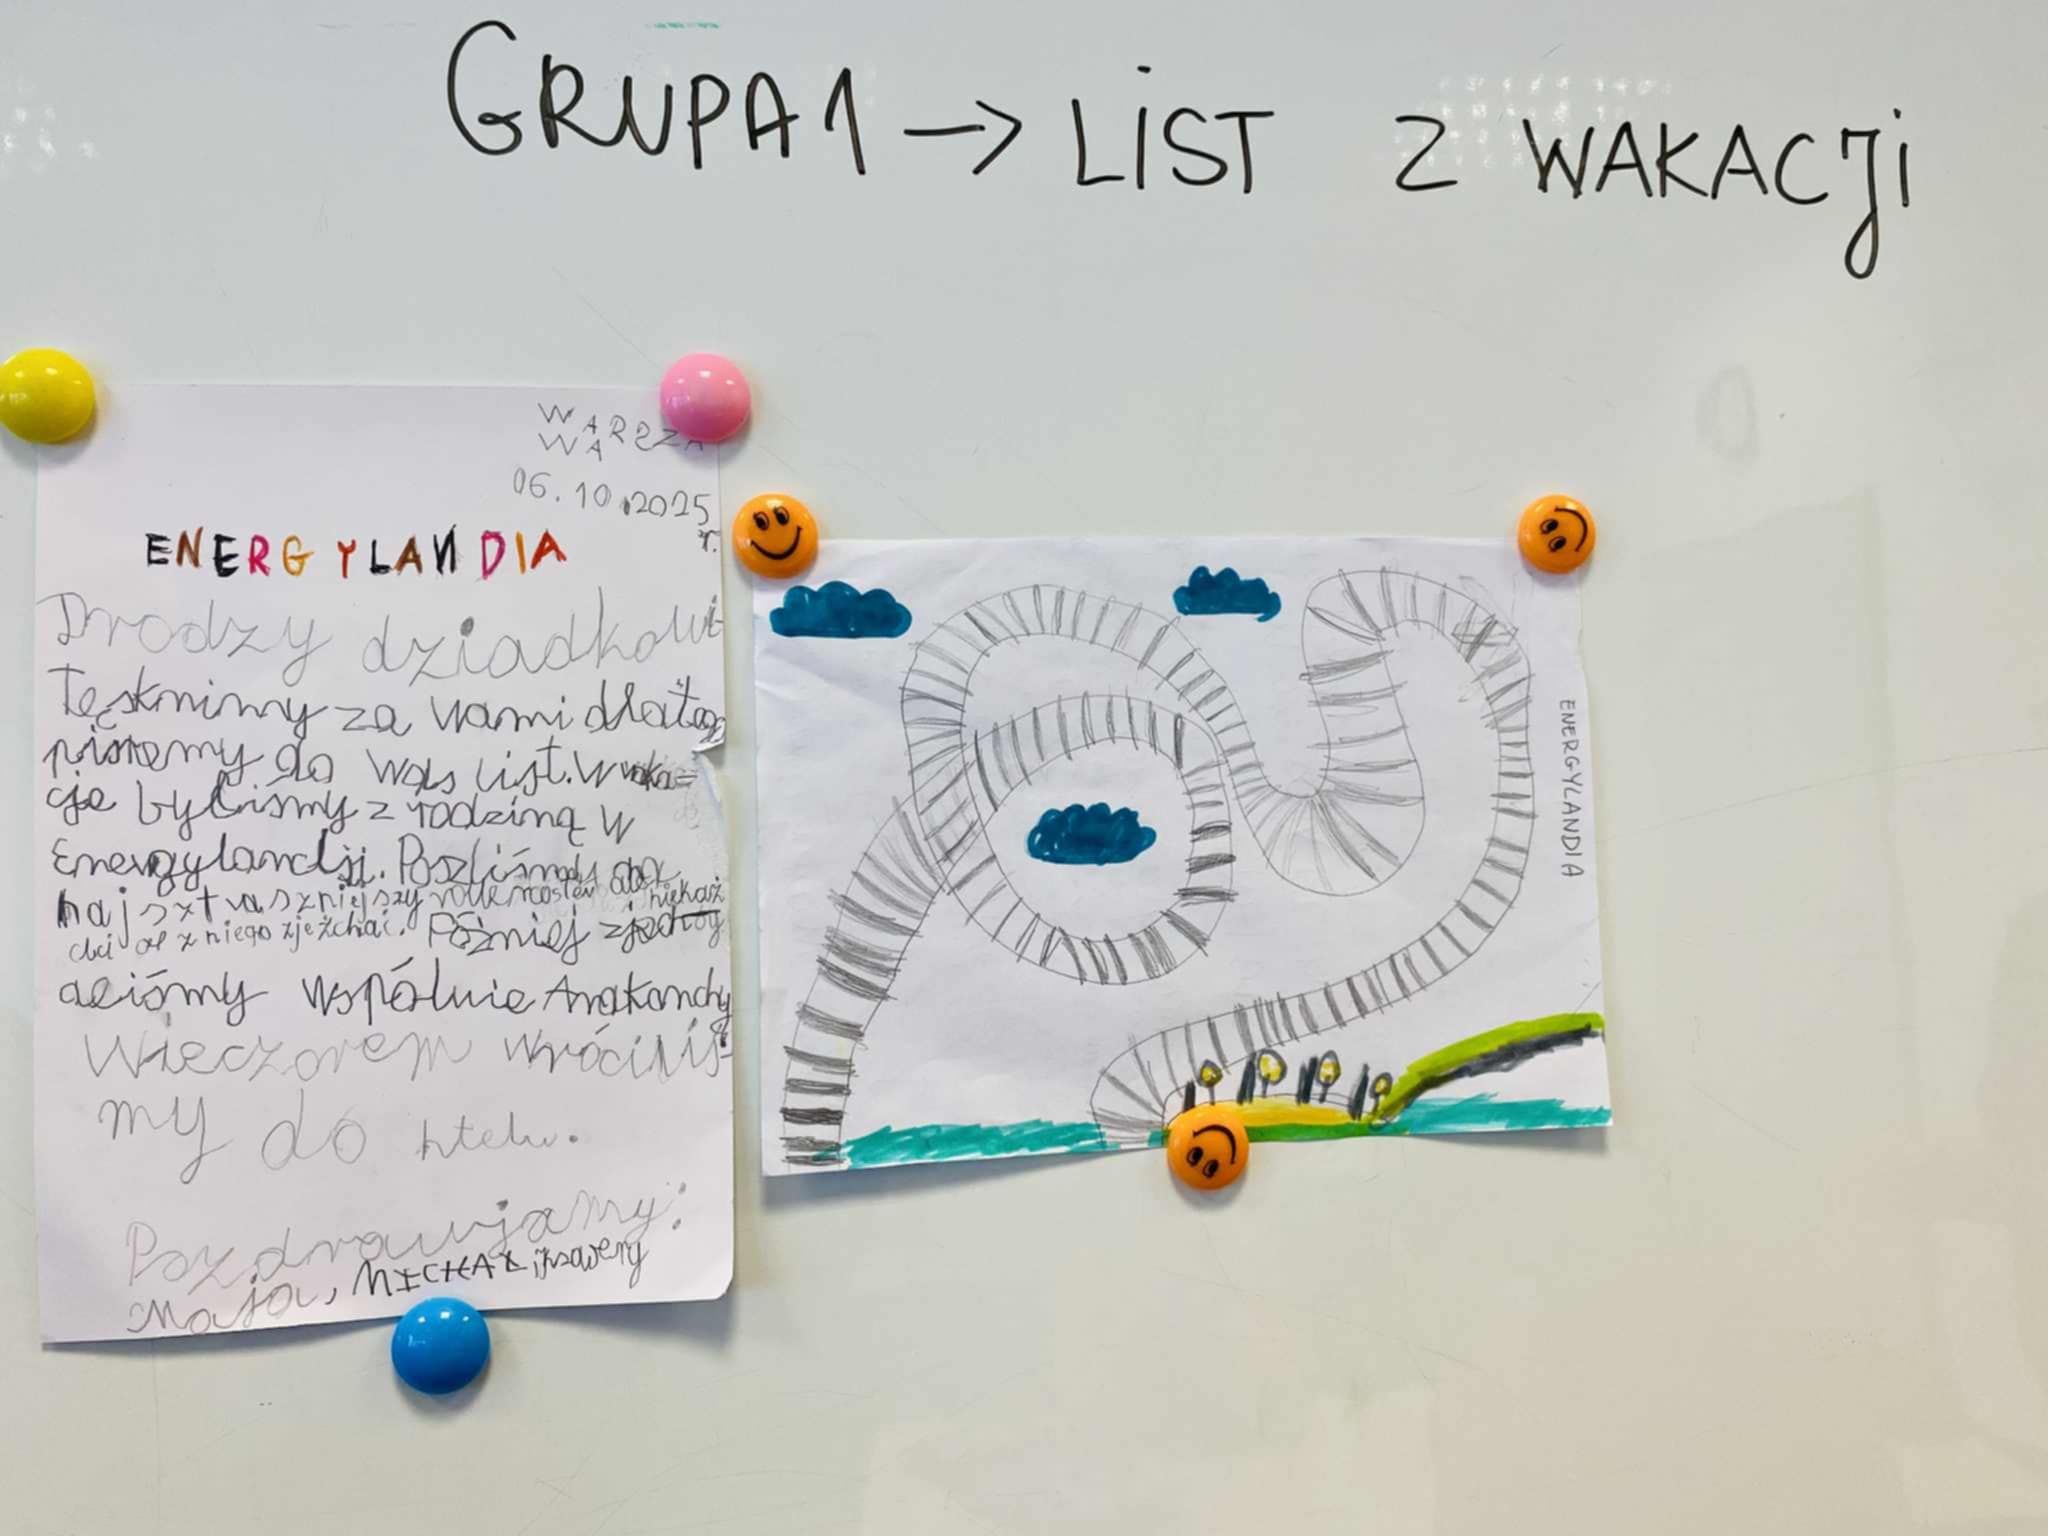 GRUPA 1 → LIST Z WAKACJI
WARSZA
WA
06.10.2025
r.
ENERGYLANDIA
Drodzy dziadkowi
Tęsknimy za wami dlatego
piszemy do was list. W waka=
cje byliśmy z rodziną w
Energylandji. Poszliśmy do
najsztraszniejszy ale nie każ
chciał z niego zjeżchać. Później zjecha
aliśmy wspólnie Anakondy
Wieczorem wróciliś-
my do htelu.
Pozdrawjamy:
Maja, MICHAŁ i ksawery
ENERGYLANDIA